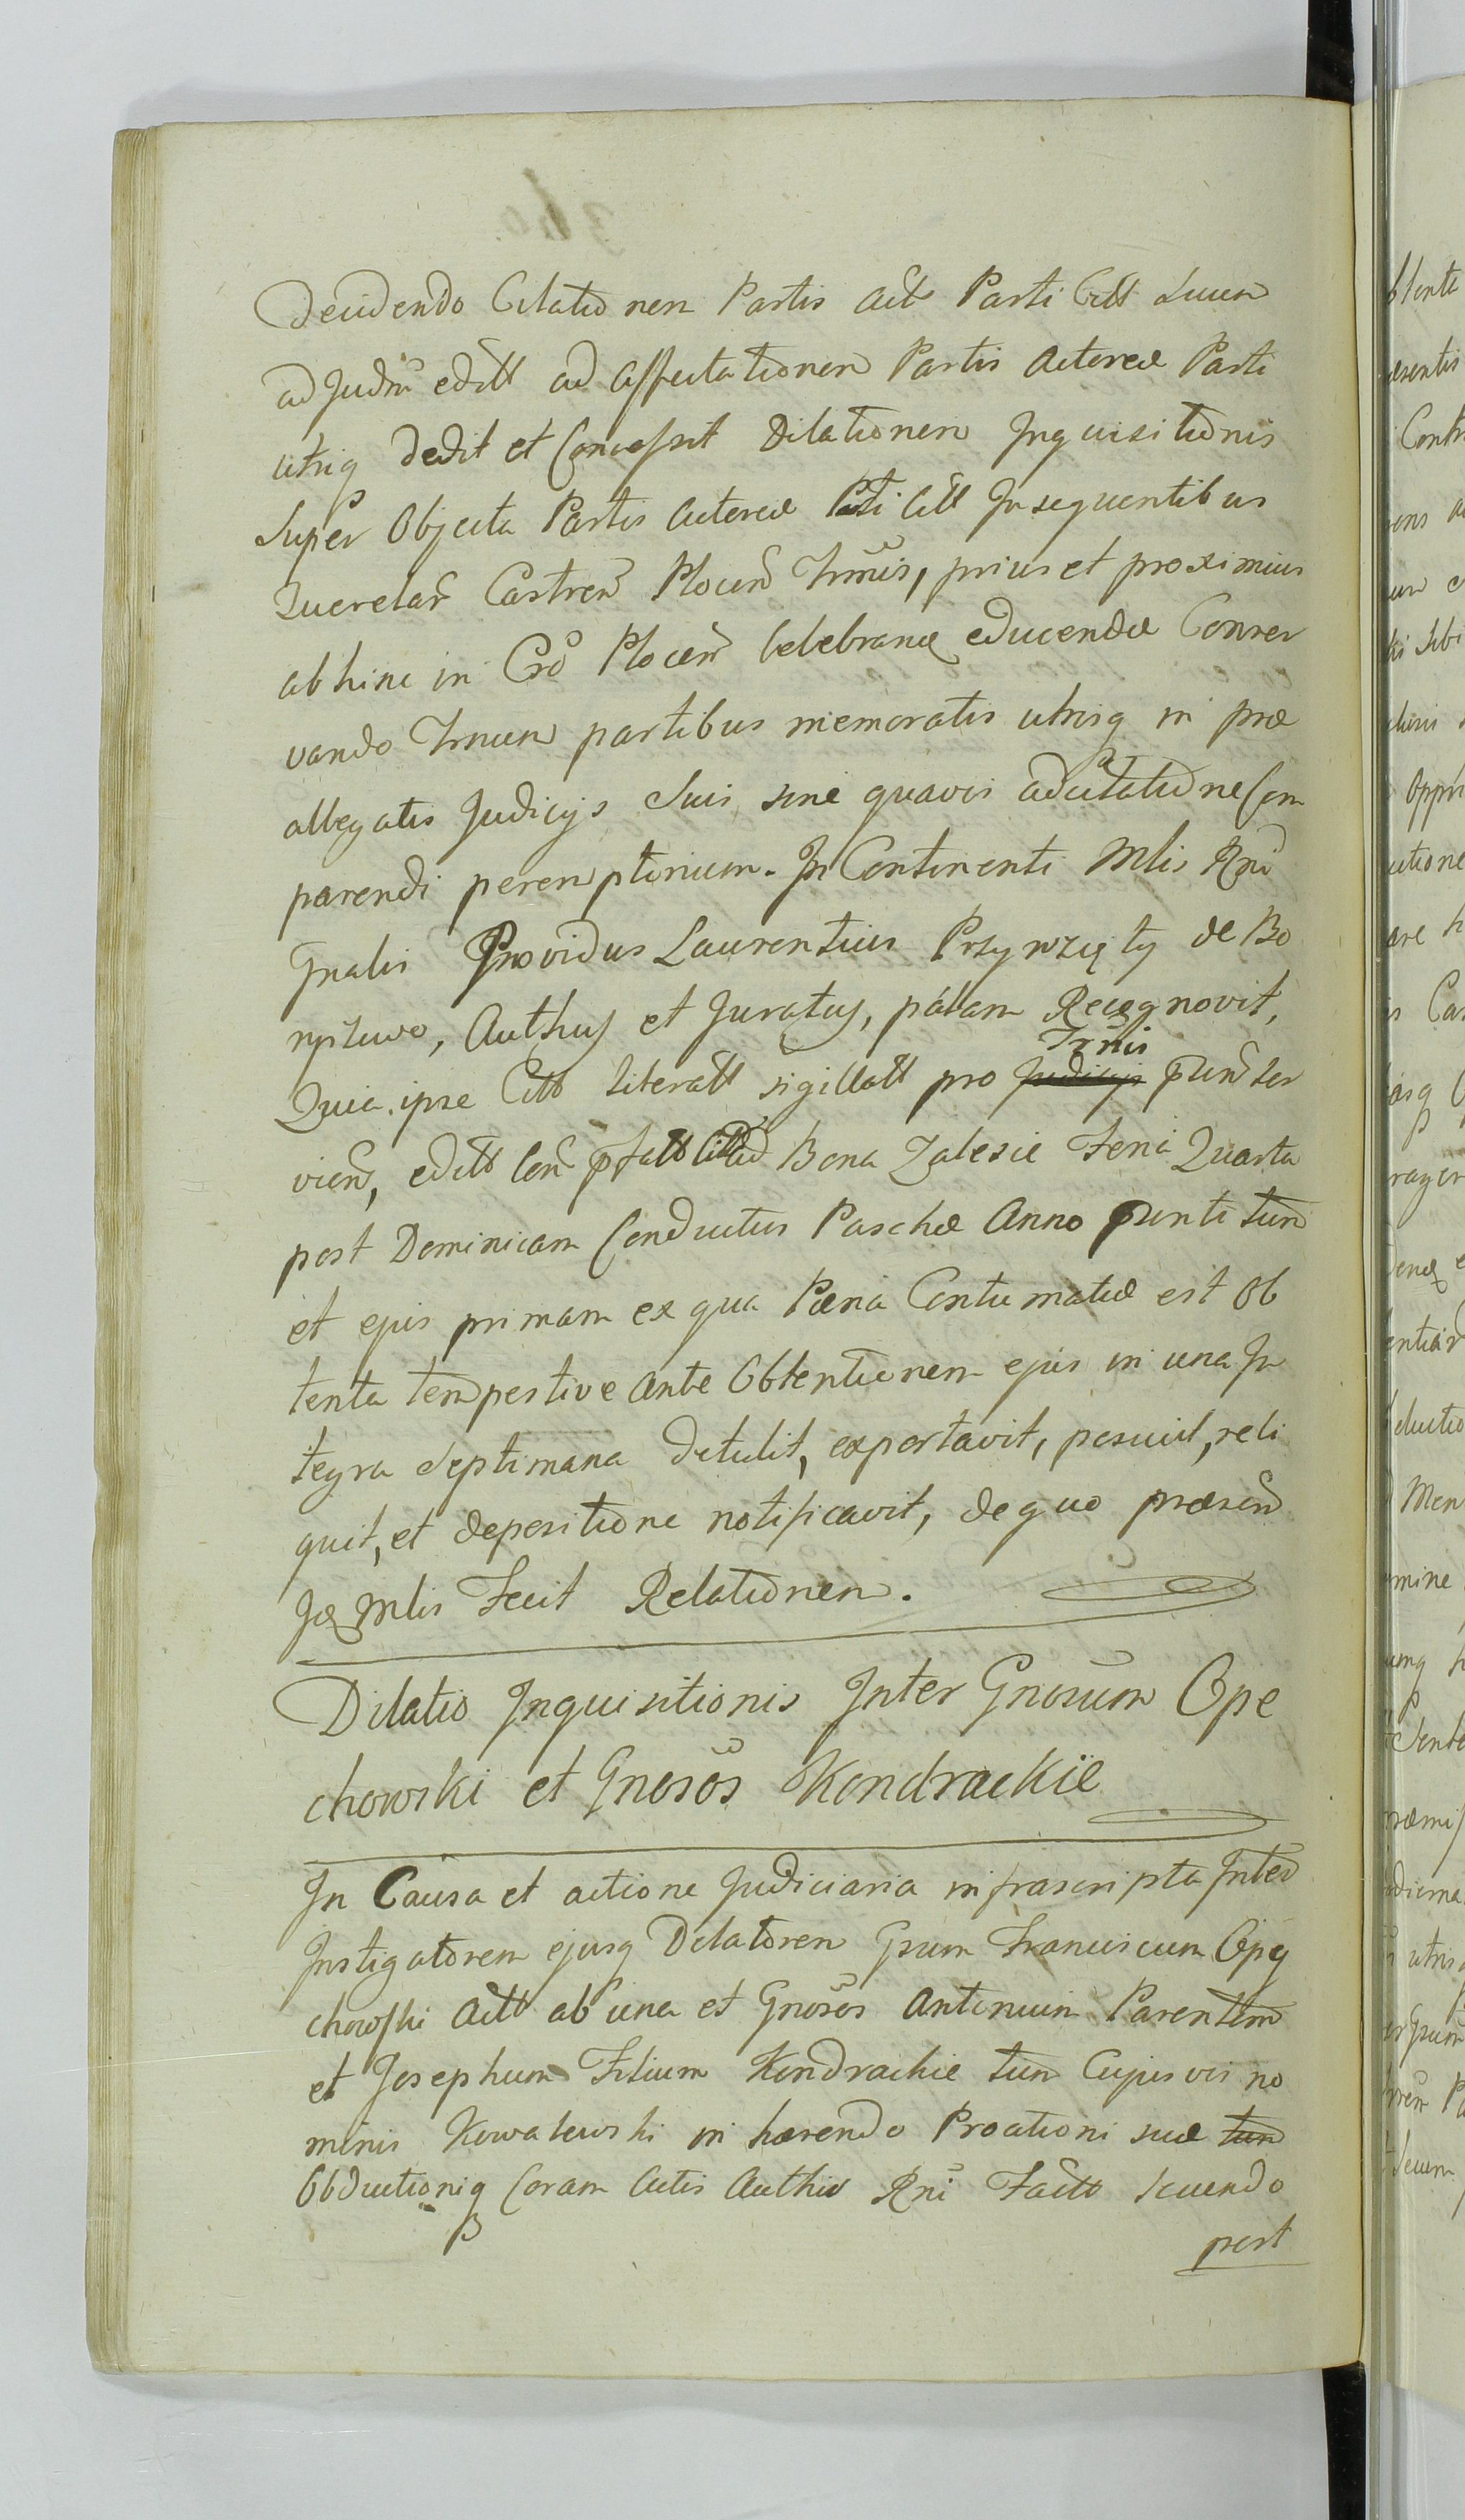 Decidendo Citationen Partis Act Parti Citt Suum
ad Judm editt ad affectationem Partis Actoreæ Parti
utriq dedit et Concessit Dilationem Inquisitionis
Super Objecta Partis Actoreæ Parti Citt In sequentibus
Querelar Castren Plocen Trmis, prius et proximius
abhinc in Cro Plocen Celebranę educendæ Conser
vando Trnum partibus memoratis utrisq in præ
allegatis Judicijs Suis sine quavis adcitatione Com
parendi peremptorium. In Continenti Mlis Rni
Gnalis Providus Laurentius Przywzięty de Bo
Authus et Juratus, palam Recognovit,
Quia ipse Citt literatt sigillatt pro Judicijs Trmis pñn ser
vien, editt Con pfatt Citt ad Bona Zalesie Feria Quarta
post Dominicam Conductus Paschæ Anno pñnti tum
et ejus primam ex qua Pæna Contumatiæ est Ob
tenta tempestive ante Obtentionem ejus in una In
tegra Septimana Detulit, exportavit, posuit, reli
quit, et depositione notificavit, de quo præsen
Ję Mlis Fecit Relationem.
Dilatio Inquisitionis Inter Gnosum Ope
chowski et Gnosos Kondrackie
In Causa et actione Judiciaria infrascripta Inter
Instigatorem ejusq Delatorem Gsum Franciscum Opę
chowski Actt ab una et Gnosos Antonium Parentem
et Josephum Filium Kondrackie tum Cujusvis no
minis Kowalewski in hærendo Proationi suæ tum
Obductioniq Coram Actis Authis Rni Factt Scuendo
post